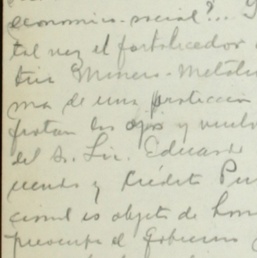 economico-social?...
tal vez el fortalecedor
tria Minero-Metalu
ma de una proteccion
frotan los ojos y vuelv
del Sr. Lic. Eduardo
cienda y Crédito Pu
cional es objeto de hon
preocupa el Gobierno